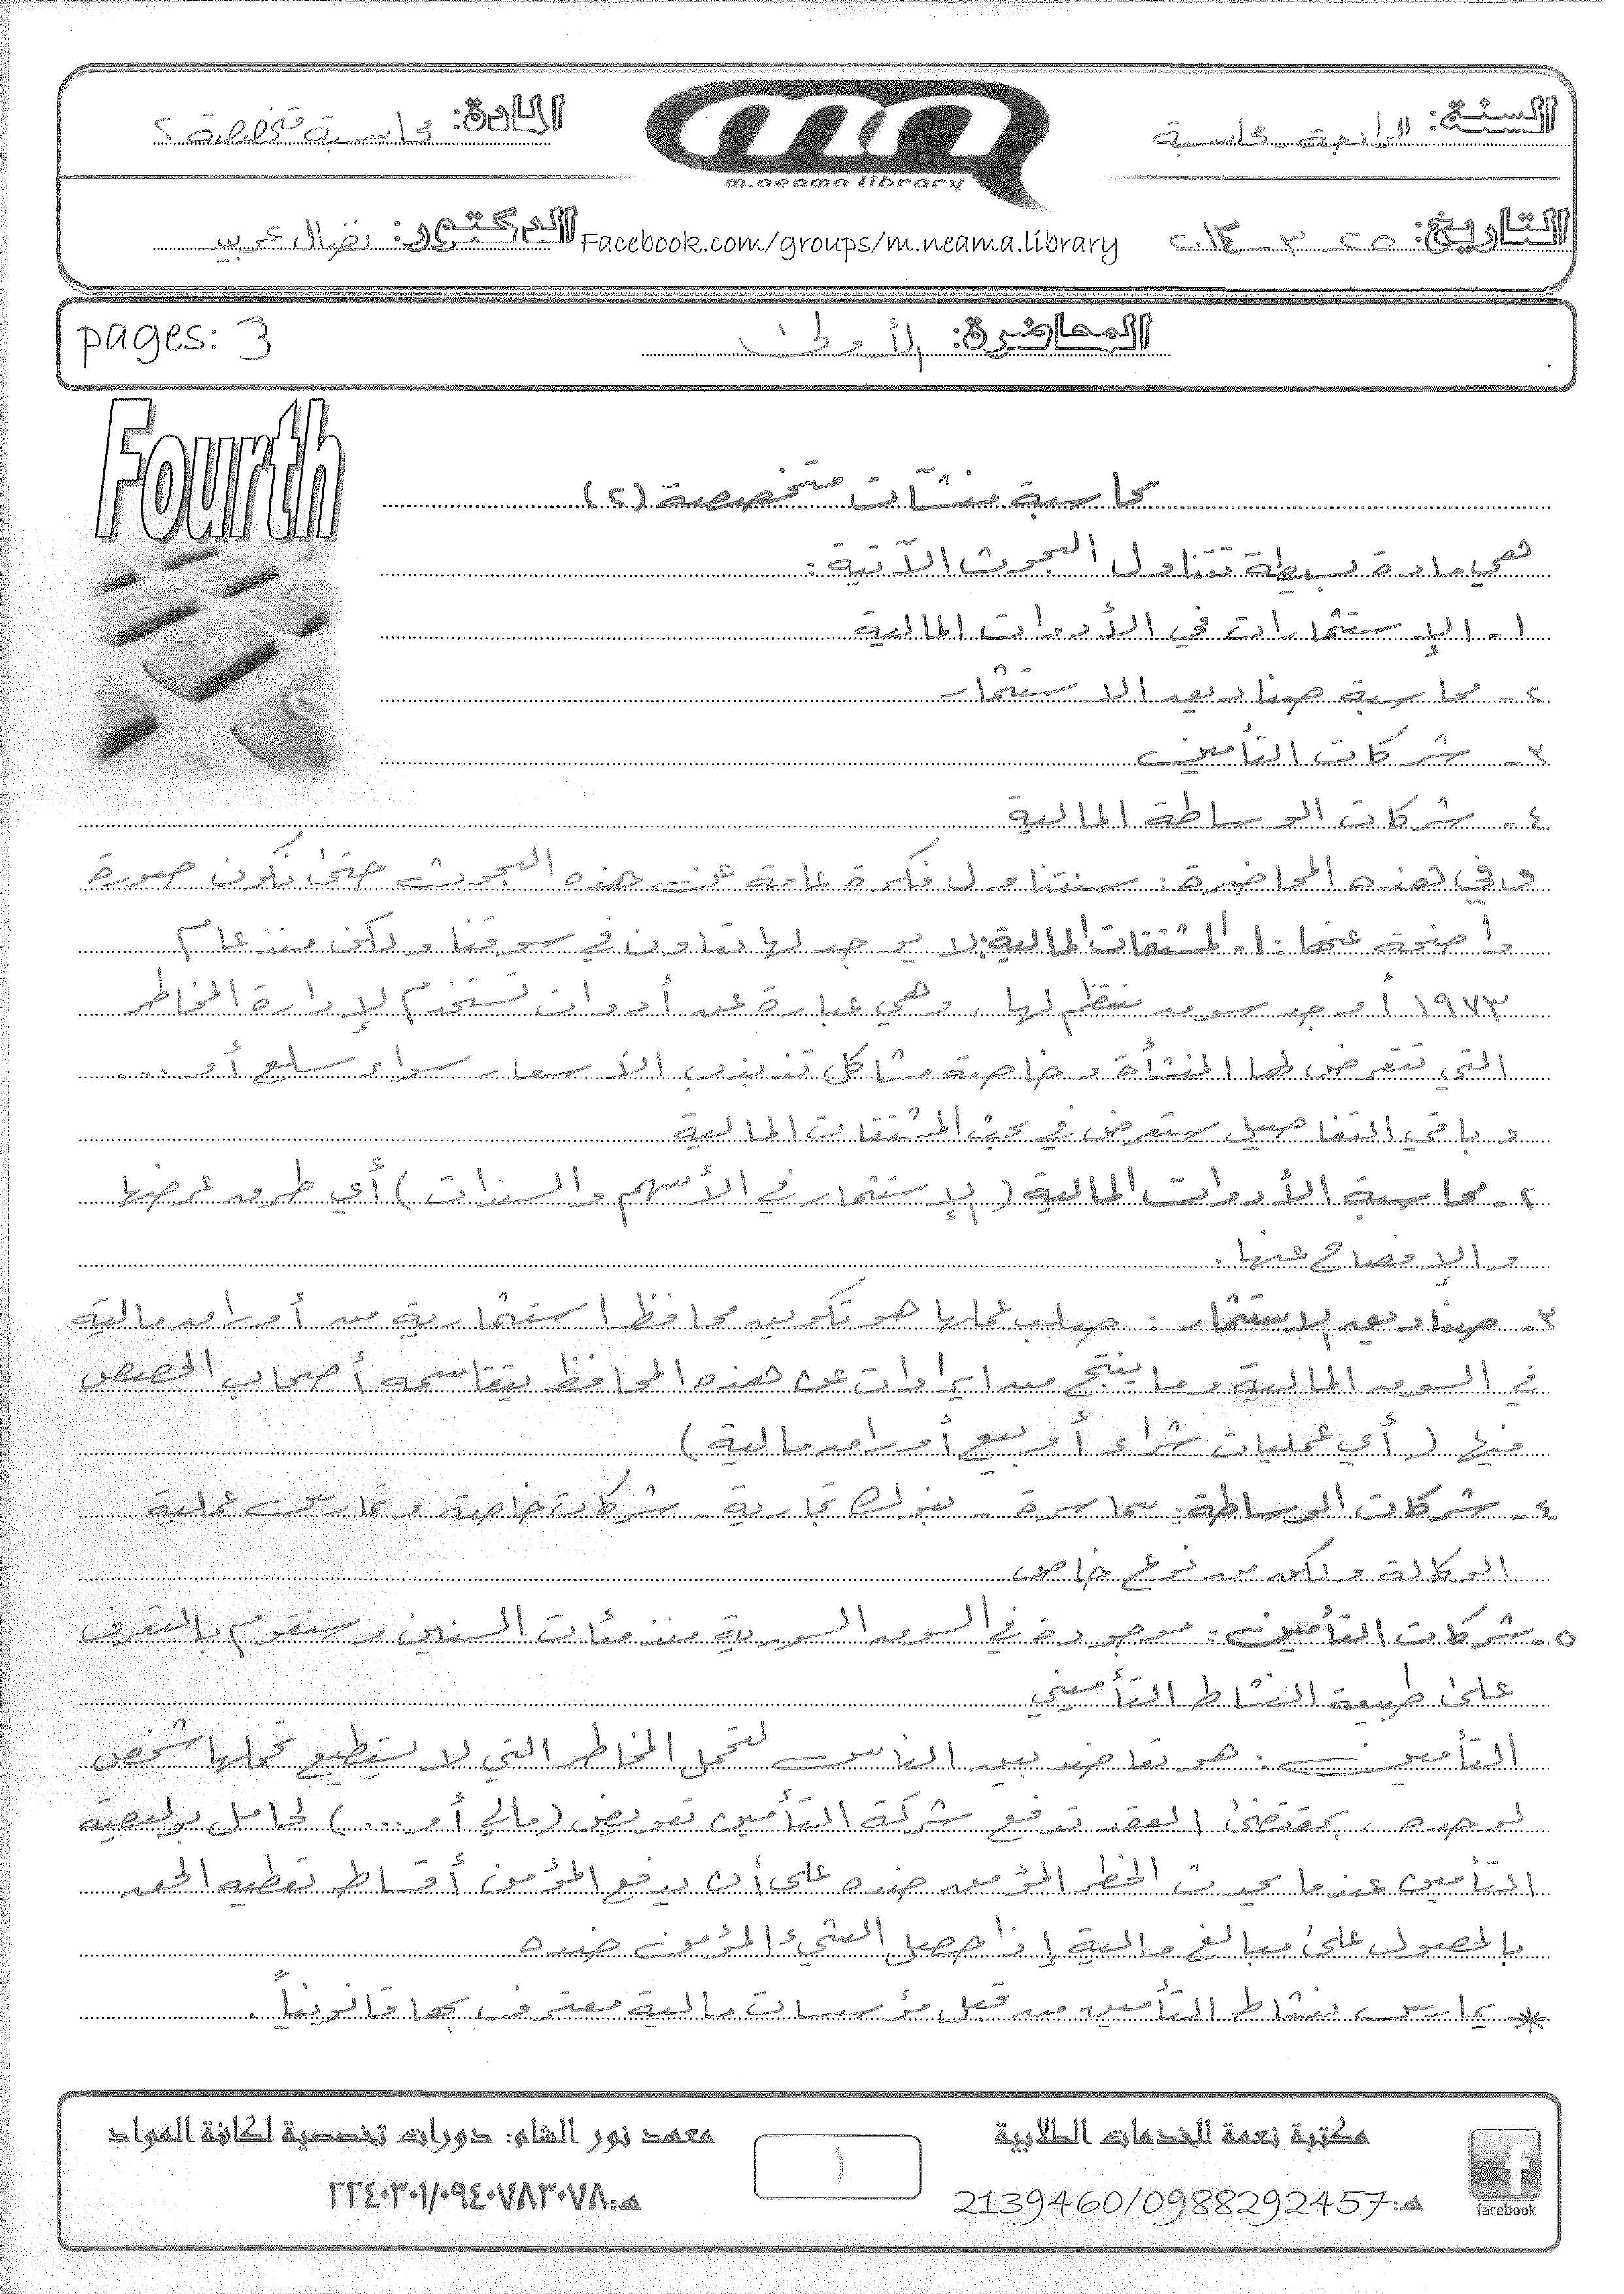 السنة: الرابعة محاسبة
المادة: محاسبة متخصصة ٢
m.neama library
التاريخ: ٢٥ - ٣ - ٢٠١٤
Facebook.com/groups/m.neama.library
الدكتور: نضال عربيد
المحاضرة: الأولى
pages: 3
Fourth
محاسبة منشآت متخصصة (٢)
هي مادة بسيطة تتناول البحوث الآتية:
١- الإستثمارات في الأدوات المالية
٢- محاسبة صناديق الاستثمار
٣- شركات التأمين
٤- شركات الوساطة المالية
وفي هذه المحاضرة: سنتناول فكرة عامة عن هذه البحوث حتى نكون صورة
واضحة عنها: ١- المشتقات المالية: لا يوجد لها تعاون في سوقنا ولكن منذ عام
١٩٧٣ أوجد سوق منظم لها، وهي عبارة عن أدوات تستخدم لإدارة المخاطر
التي تتعرض لها المنشأة وخاصة مشاكل تذبذب الأسعار سواء سلع أو ...
وباقي التفاصيل ستعرض في بحث المشتقات المالية
٢- محاسبة الأدوات المالية (الإستثمار في الأسهم والسندات) أي طرق عرضها
والإفصاح عنها.
٣- صناديق الاستثمار: صلب عملها هو تكوين محافظ استثمارية من أوراق مالية
في السوق المالية وما ينتج من ايرادات عن هذه المحافظ يتقاسمه أصحاب الحصص
فيها (أي عمليات شراء أو بيع أوراق مالية)
٤- شركات الوساطة: سماسرة - بنوك تجارية - شركات خاصة وتمارس عملية
الوكالة ولكن من نوع خاص
٥- شركات التأمين: موجودة في السوق السورية منذ مئات السنين وسنقوم بالتعرف
على طبيعة النشاط التأميني
التأمين: هو تعاضد بين الناس لتحمل المخاطر التي لا يستطيع تحملها شخص
لوحده، بمقتضى العقد تدفع شركة التأمين تعويض (مالي أو ...) لحامل بوليصة
التأمين عندما يحدث الخطر المؤمن ضده على أن يدفع المؤمن أقساط تعطيه الحق
بالحصول على مبالغ مالية إذا حصل الشيء المؤمن ضده
* يمارس نشاط التأمين من قبل مؤسسات مالية معترف بها قانونياً.
مكتبة نعمة للخدمات الطلابية
هـ: 2139460/0988292457
facebook
١
معهد نور الشام: دورات تخصصية لكافة المواد
هـ: ٢٢٤٠٣٠١/٠٩٤٠٧٨٣٠٧٨